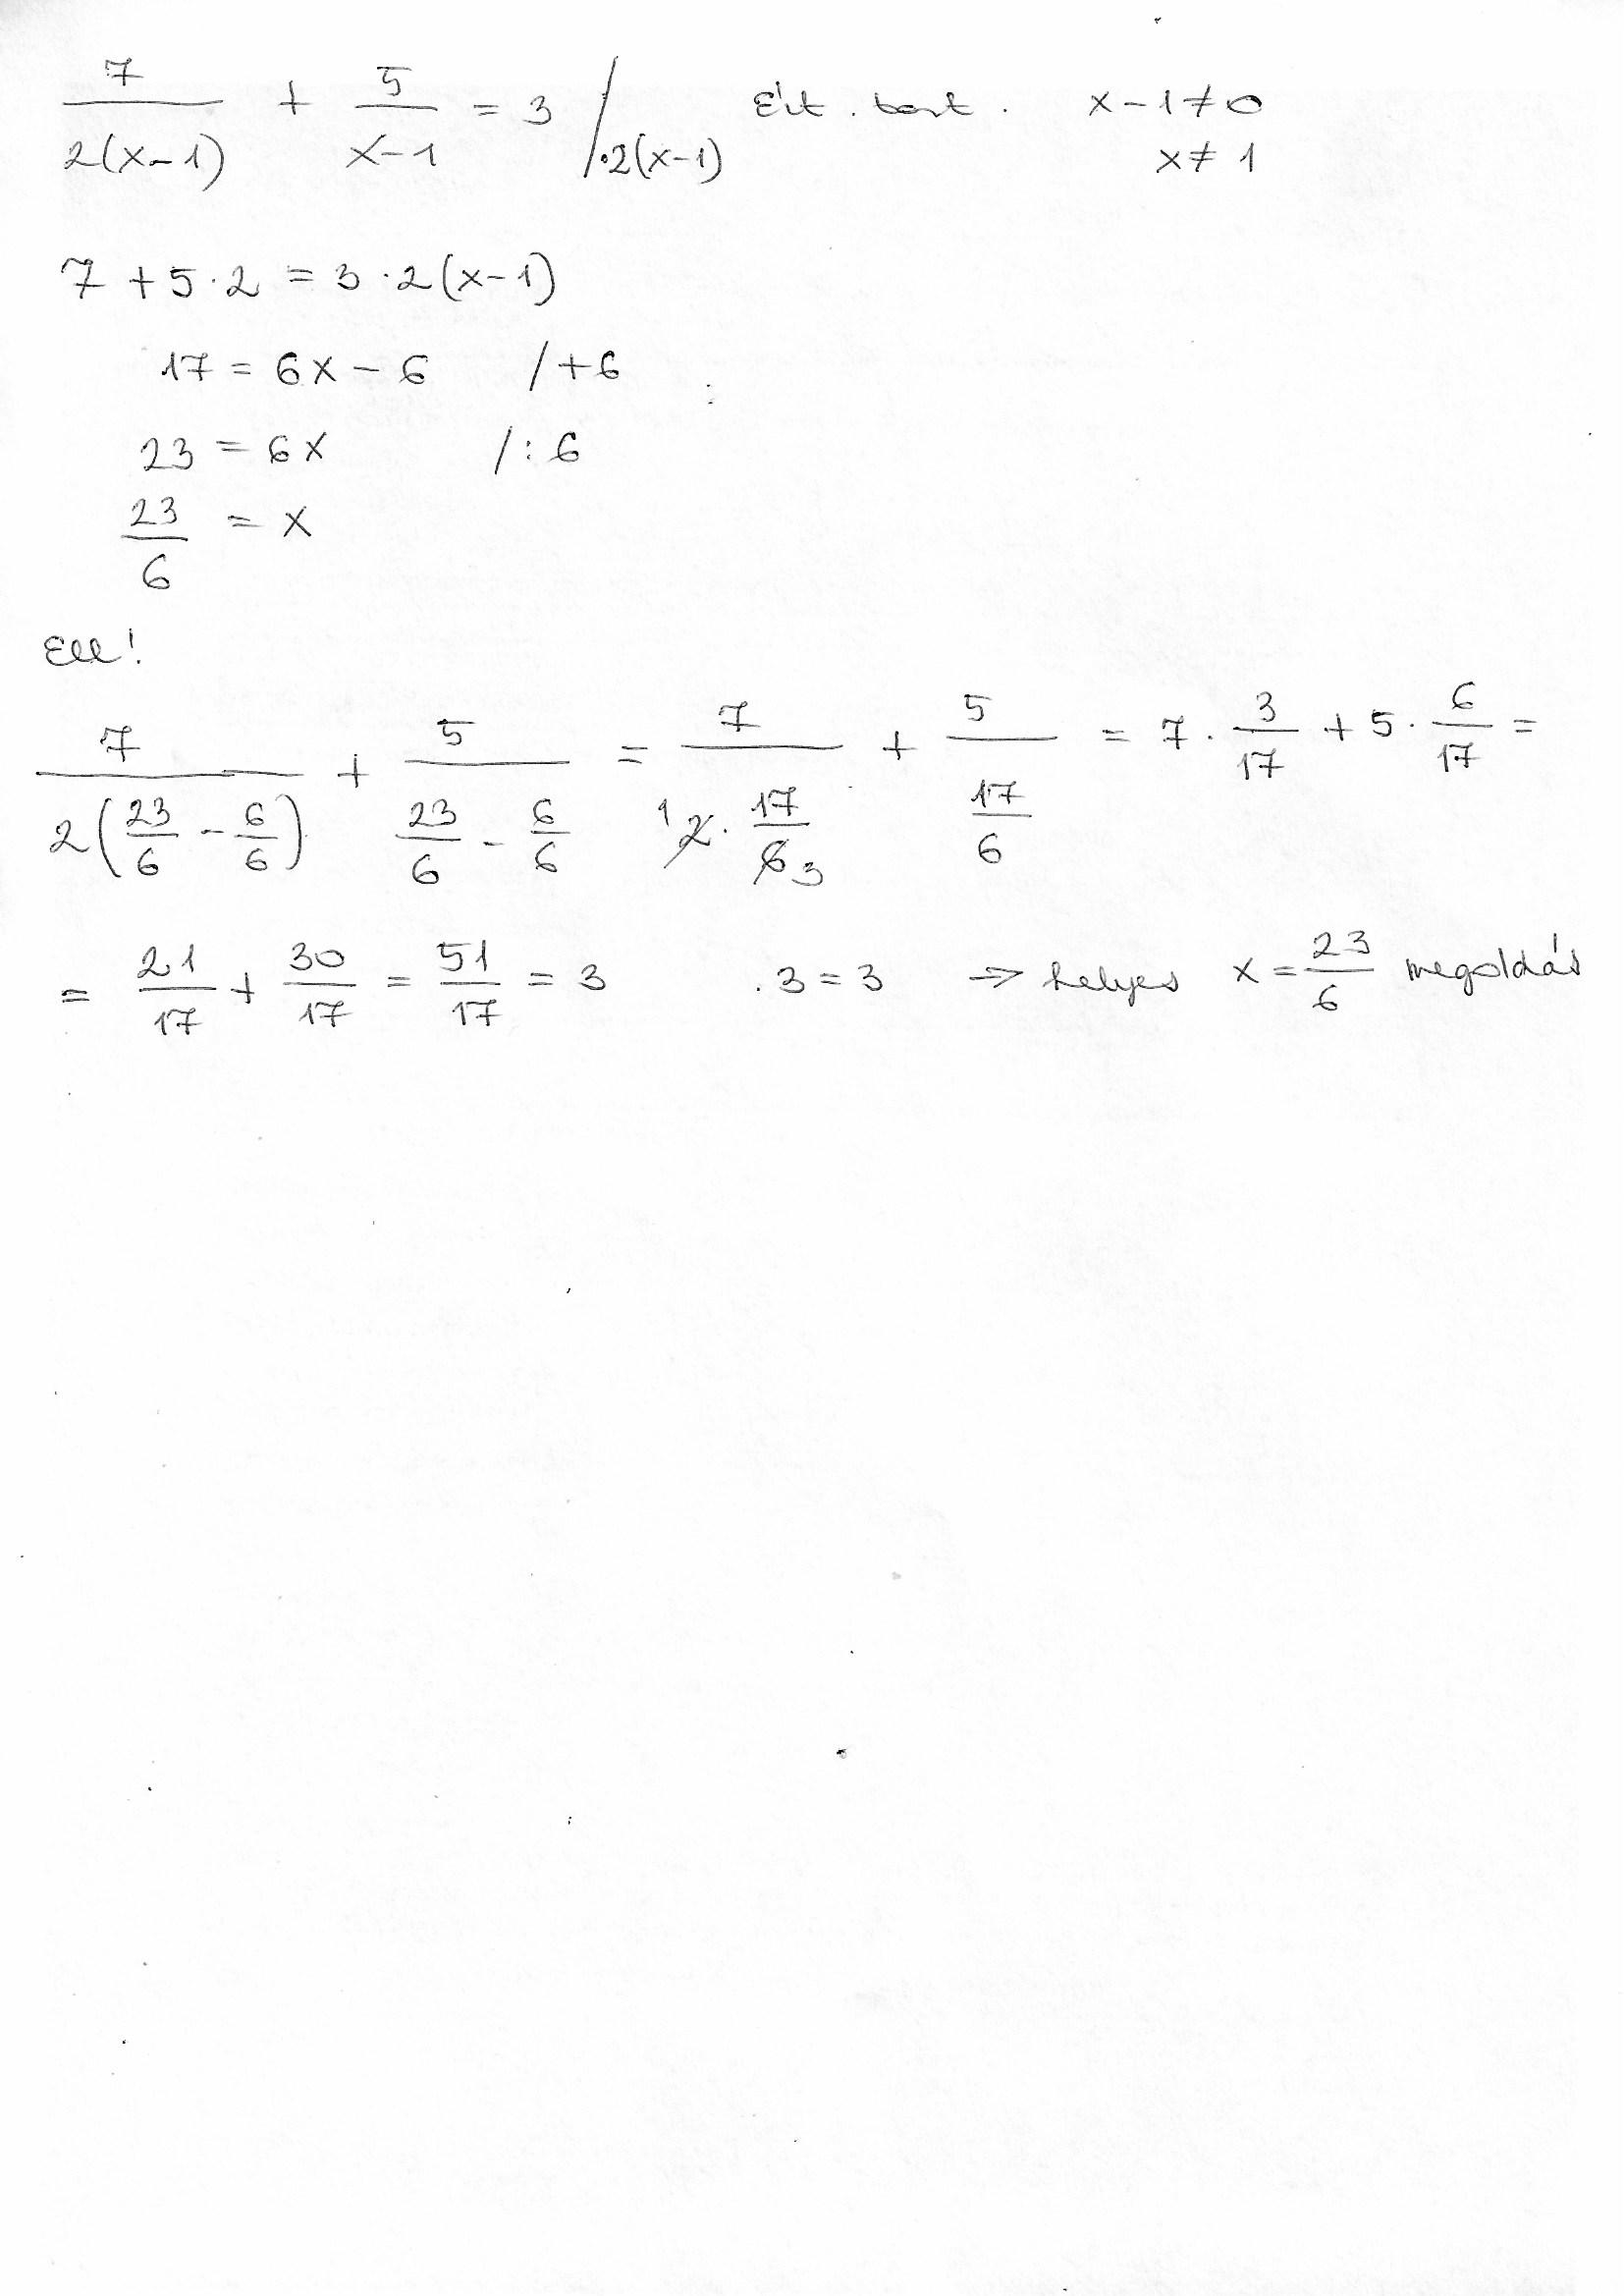 7/(2(x-1)) + 5/(x-1) = 3 /·2(x-1) Ért. tart. x-1≠0
x≠1
7+5·2 = 3·2(x-1)
17 = 6x-6 /+6
23 = 6x /:6
23/6 = x
Ell!
7/(2(23/6 - 6/6)) + 5/(23/6 - 6/6) = 7/(2·17/6) + 5/(17/6) = 7·3/17 + 5·6/17 =
= 21/17 + 30/17 = 51/17 = 3 3=3 => helyes x=23/6 megoldás